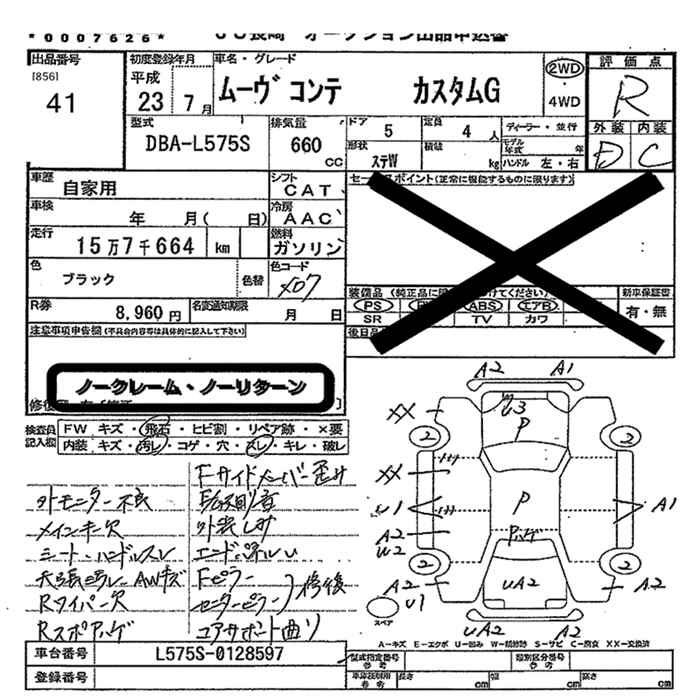 *0007626*
出品番号
[856]
41
初度登録年月
平成
23 7月
車名・グレード
ムーヴ コンテ カスタムG
2WD
・
4WD
評価点
R
外装 内装
D C
型式
DBA-L575S
排気量
660
cc
ドア
5
定員
4 人
ディーラー・並行
形状
ステW
積載
kg
モデル年式
年
ハンドル 左・右
車歴
自家用
シフト
CAT
車検
年 月( 日)
冷房
AAC
走行
15万7千664 km
燃料
ガソリン
色
ブラック
色替
色コード
X07
R券
8,960円
名変通知期限
月 日
セールスポイント(正常に機能するものに限ります)
装備品
PS ABS エアB
SR TV カワ
新車保証書
有・無
注意事項申告欄(不具合内容等は具体的に記入して下さい)
ノークレーム・ノーリターン
検査員
記入欄
FW キズ・飛石・ヒビ割・リペア跡・×要
内装 キズ・汚レ・コゲ・穴・スレ・キレ・破レ
Fサイドメンバー歪み
外モニター不良
メインキー欠
シート・ハンドルスレ
エンドパネルU
天張汚レ AWキズ
Fピラー
Rワイパー欠
センターピラー
修復
コアサポート曲り
車台番号
L575S-0128597
登録番号
A2 A1
XX
U3
P
2 2
XX
U1
P
A1
A2
U2
2 2
A2
UA2
A2
U1
スペア
UA2 A2
A-キズ E-エクボ U-凹み W-補修跡 S-サビ C-腐食 XX-交換済
型式指定番号
類別区分番号
長さ cm
幅 cm
高さ cm